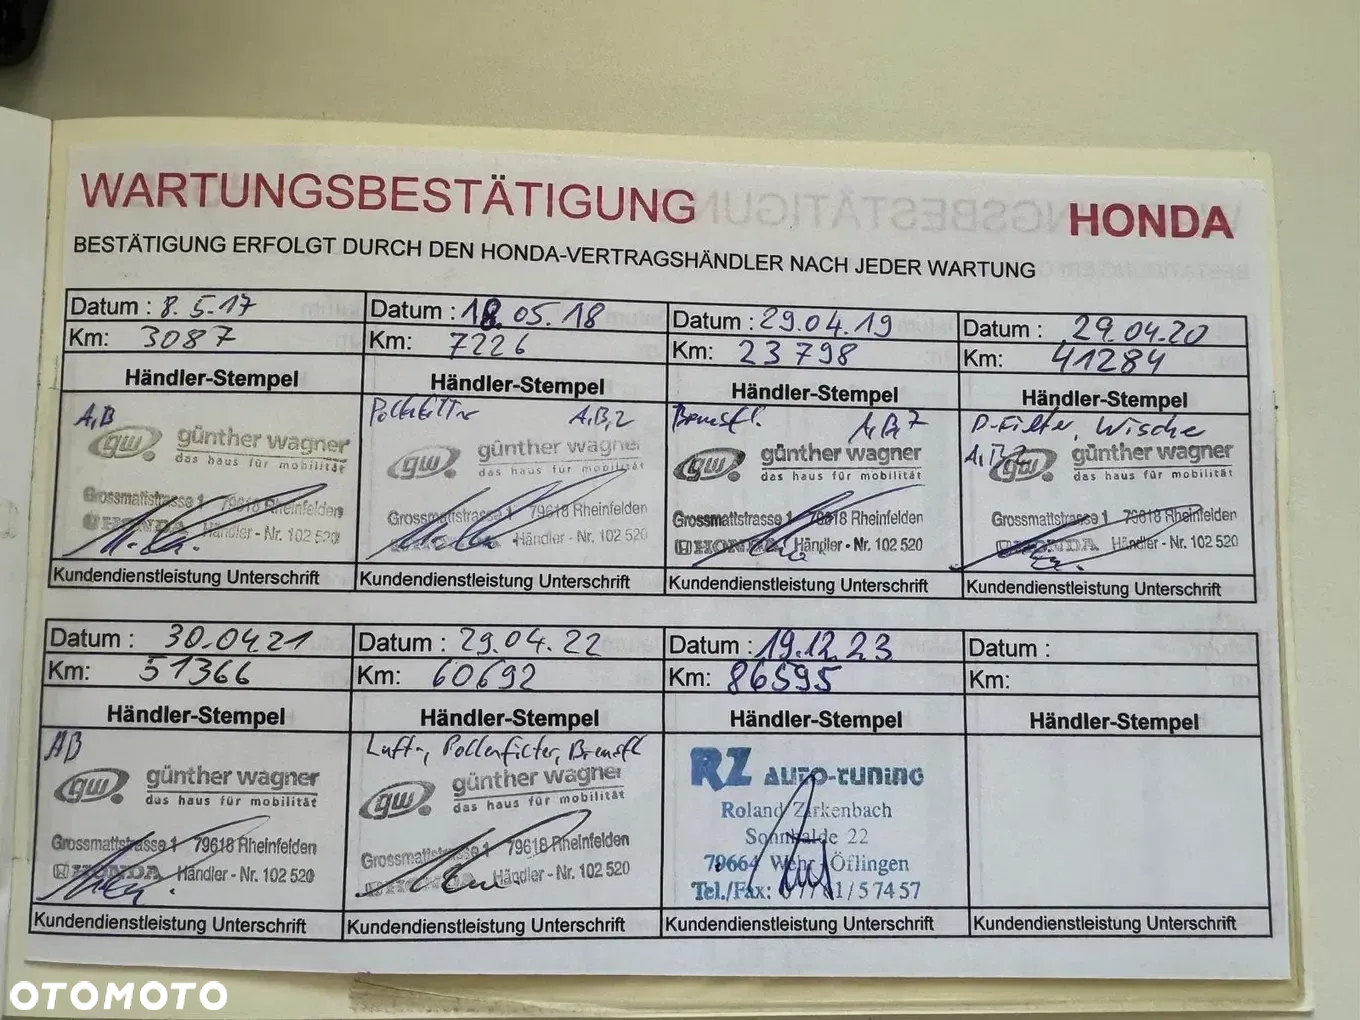 WARTUNGSBESTÄTIGUNG
HONDA
BESTÄTIGUNG ERFOLGT DURCH DEN HONDA-VERTRAGSHÄNDLER NACH JEDER WARTUNG
Datum : 8.5.17
Km: 3087
Händler-Stempel
A,B
gw. günther wagner
das haus für mobilität
Grossmattstrasse 1 79618 Rheinfelden
HONDA Händler - Nr. 102 520
Kundendienstleistung Unterschrift
Datum : 18.05.18
Km: 7226
Händler-Stempel
A,B,2
gw. günther wagner
das haus für mobilität
Grossmattstrasse 1 79618 Rheinfelden
Händler - Nr. 102 520
Kundendienstleistung Unterschrift
Datum : 29.04.19
Km: 23798
Händler-Stempel
Bremsfl. A,B,7
gw. günther wagner
das haus für mobilität
Grossmattstrasse 1 79618 Rheinfelden
HONDA Händler - Nr. 102 520
Kundendienstleistung Unterschrift
Datum : 29.04.20
Km: 41284
Händler-Stempel
P-Filter, Wischer
gw. günther wagner
das haus für mobilität
Grossmattstrasse 1 79618 Rheinfelden
HONDA Händler - Nr. 102 520
Kundendienstleistung Unterschrift
Datum : 30.04.21
Km: 51366
Händler-Stempel
AB
gw. günther wagner
das haus für mobilität
Grossmattstrasse 1 79618 Rheinfelden
HONDA Händler - Nr. 102 520
Kundendienstleistung Unterschrift
Datum : 29.04.22
Km: 60692
Händler-Stempel
Luft-, Pollenfilter, Bremsfl
gw. günther wagner
das haus für mobilität
Grossmattstrasse 1 79618 Rheinfelden
HONDA Händler - Nr. 102 520
Kundendienstleistung Unterschrift
Datum : 19.12.23
Km: 86595
Händler-Stempel
RZ AUTO-TUNING
Roland Zirkenbach
Sonnhalde 22
79664 Wehr-Öflingen
Tel./Fax: 07761/57457
Kundendienstleistung Unterschrift
Datum :
Km:
Händler-Stempel
Kundendienstleistung Unterschrift
OTOMOTO